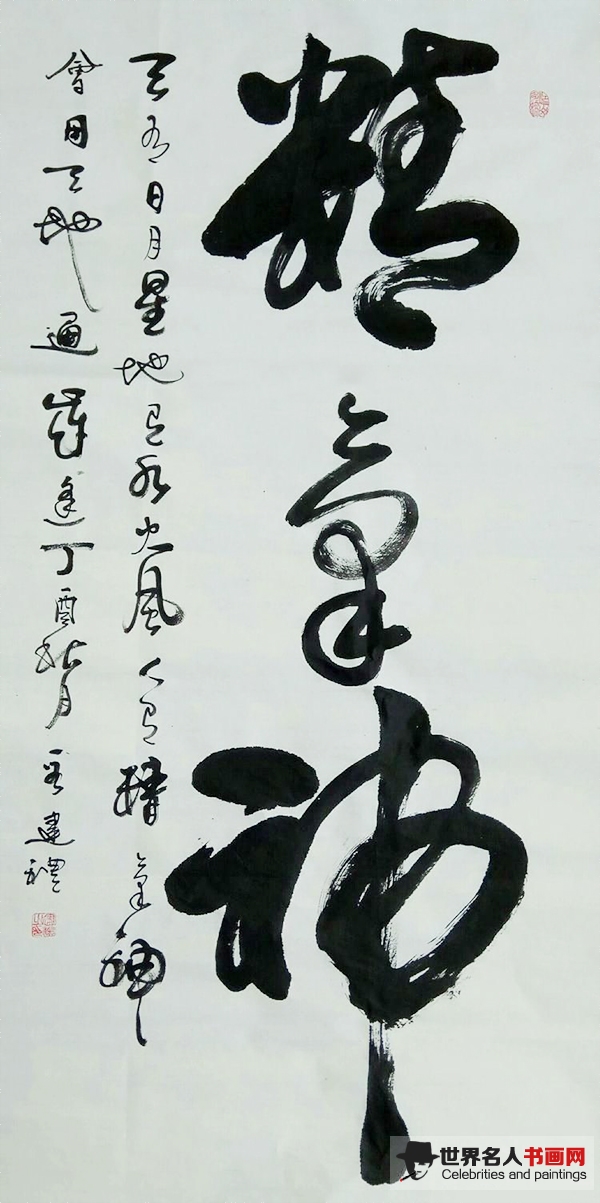 精氣神
天有日月星地有水火風人有精氣神
會用天地通
丁酉秋月
建禮
世界名人书画网
Celebrities and paintings